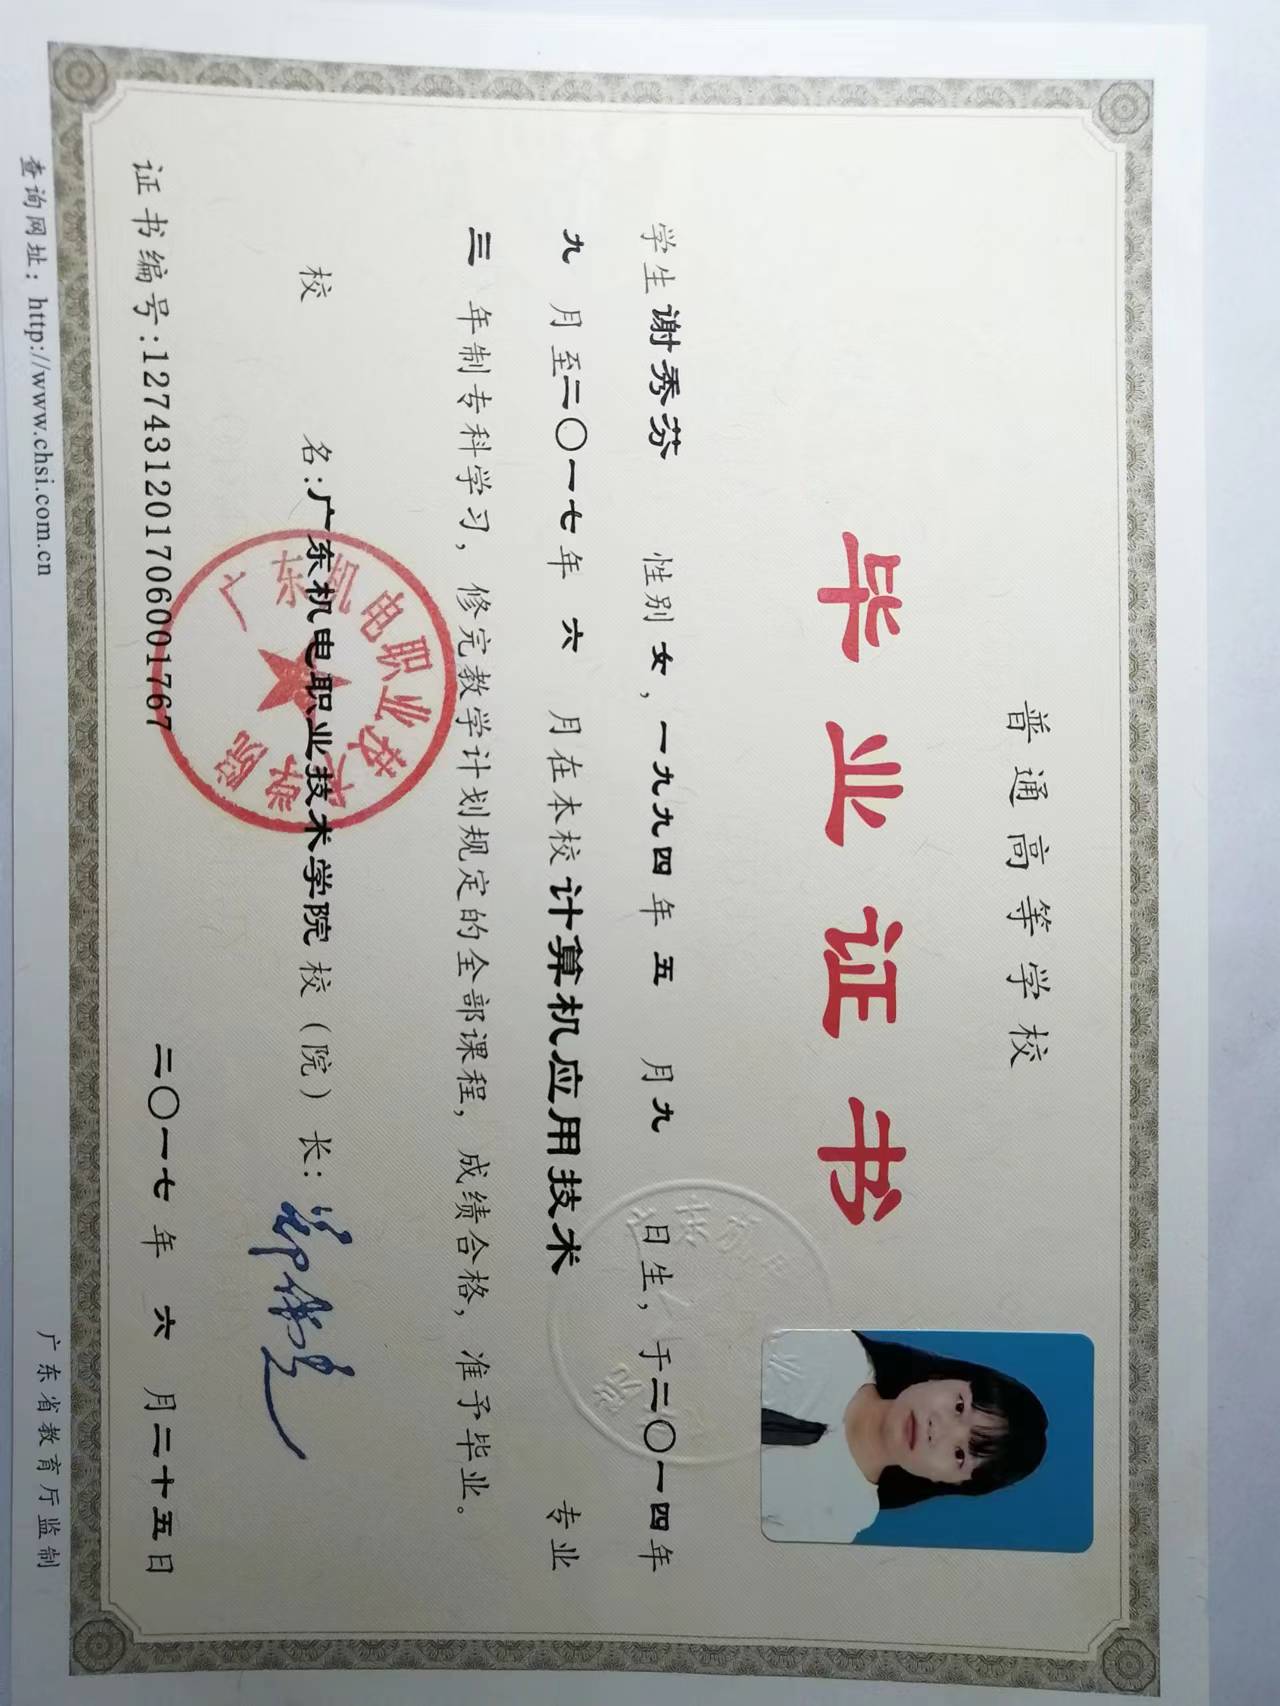 普通高等学校
毕业证书
学生谢秀芬 性别女，一九九四年五月九日生，于二〇一四年
九月至二〇一七年六月在本校计算机应用技术专业
三年制专科学习，修完教学计划规定的全部课程，成绩合格，准予毕业。
校 名：广东机电职业技术学院校（院）长：
广东机电职业技术学院
证书编号：127431201706001767 二〇一七年六月二十五日
查询网址：http://www.chsi.com.cn 广东省教育厅监制